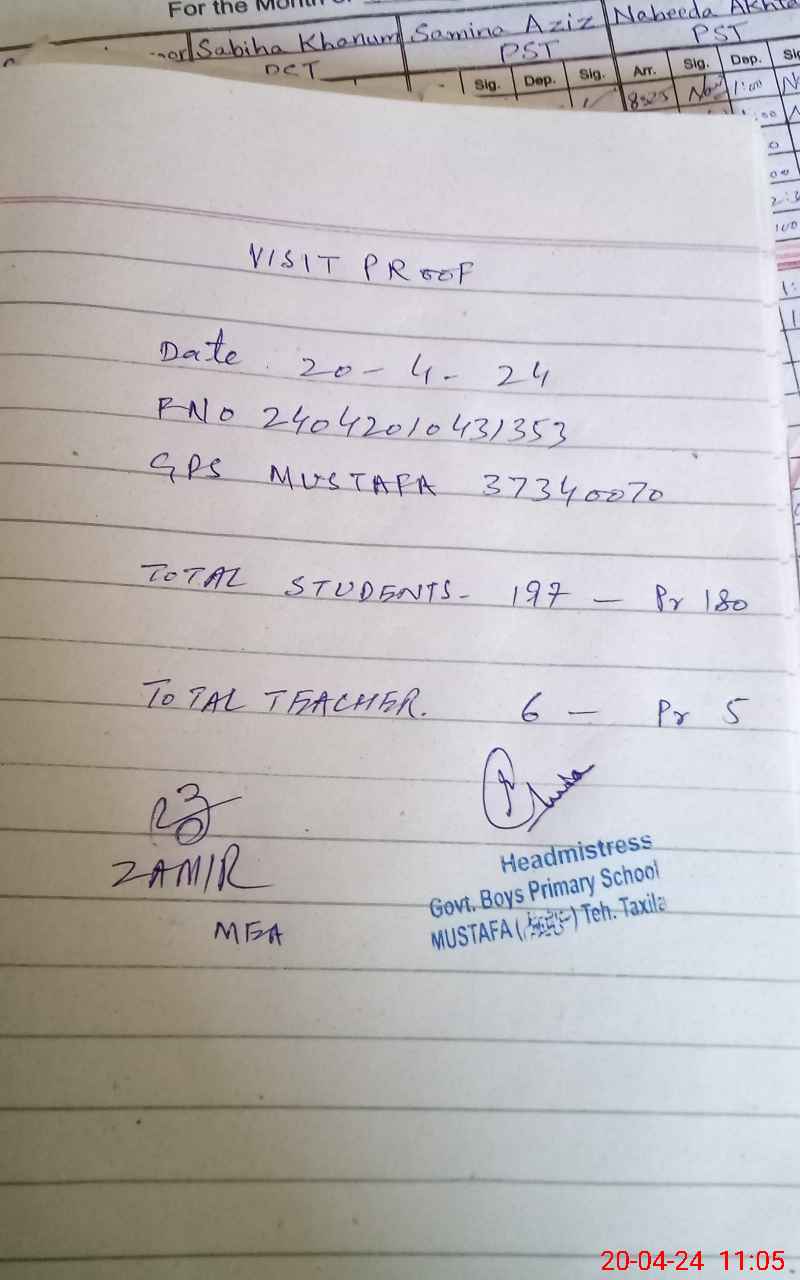 For the Month
Sabiha Khanum Samina Aziz Nabeeda Akhta
PST PST
Sig. Dep. Sig. Arr. Sig. Dep. Sig
1:00
VISIT PROOF
Date 20-4-24
FNO 24042010431353
GPS MUSTAFA 37340070
TOTAL STUDENTS- 197 - Pr 180
TOTAL TEACHER. 6 - Pr 5
ZAMIR
MEA
Headmistress
Govt. Boys Primary School
MUSTAFA ( ) Teh. Taxila
20-04-24 11:05